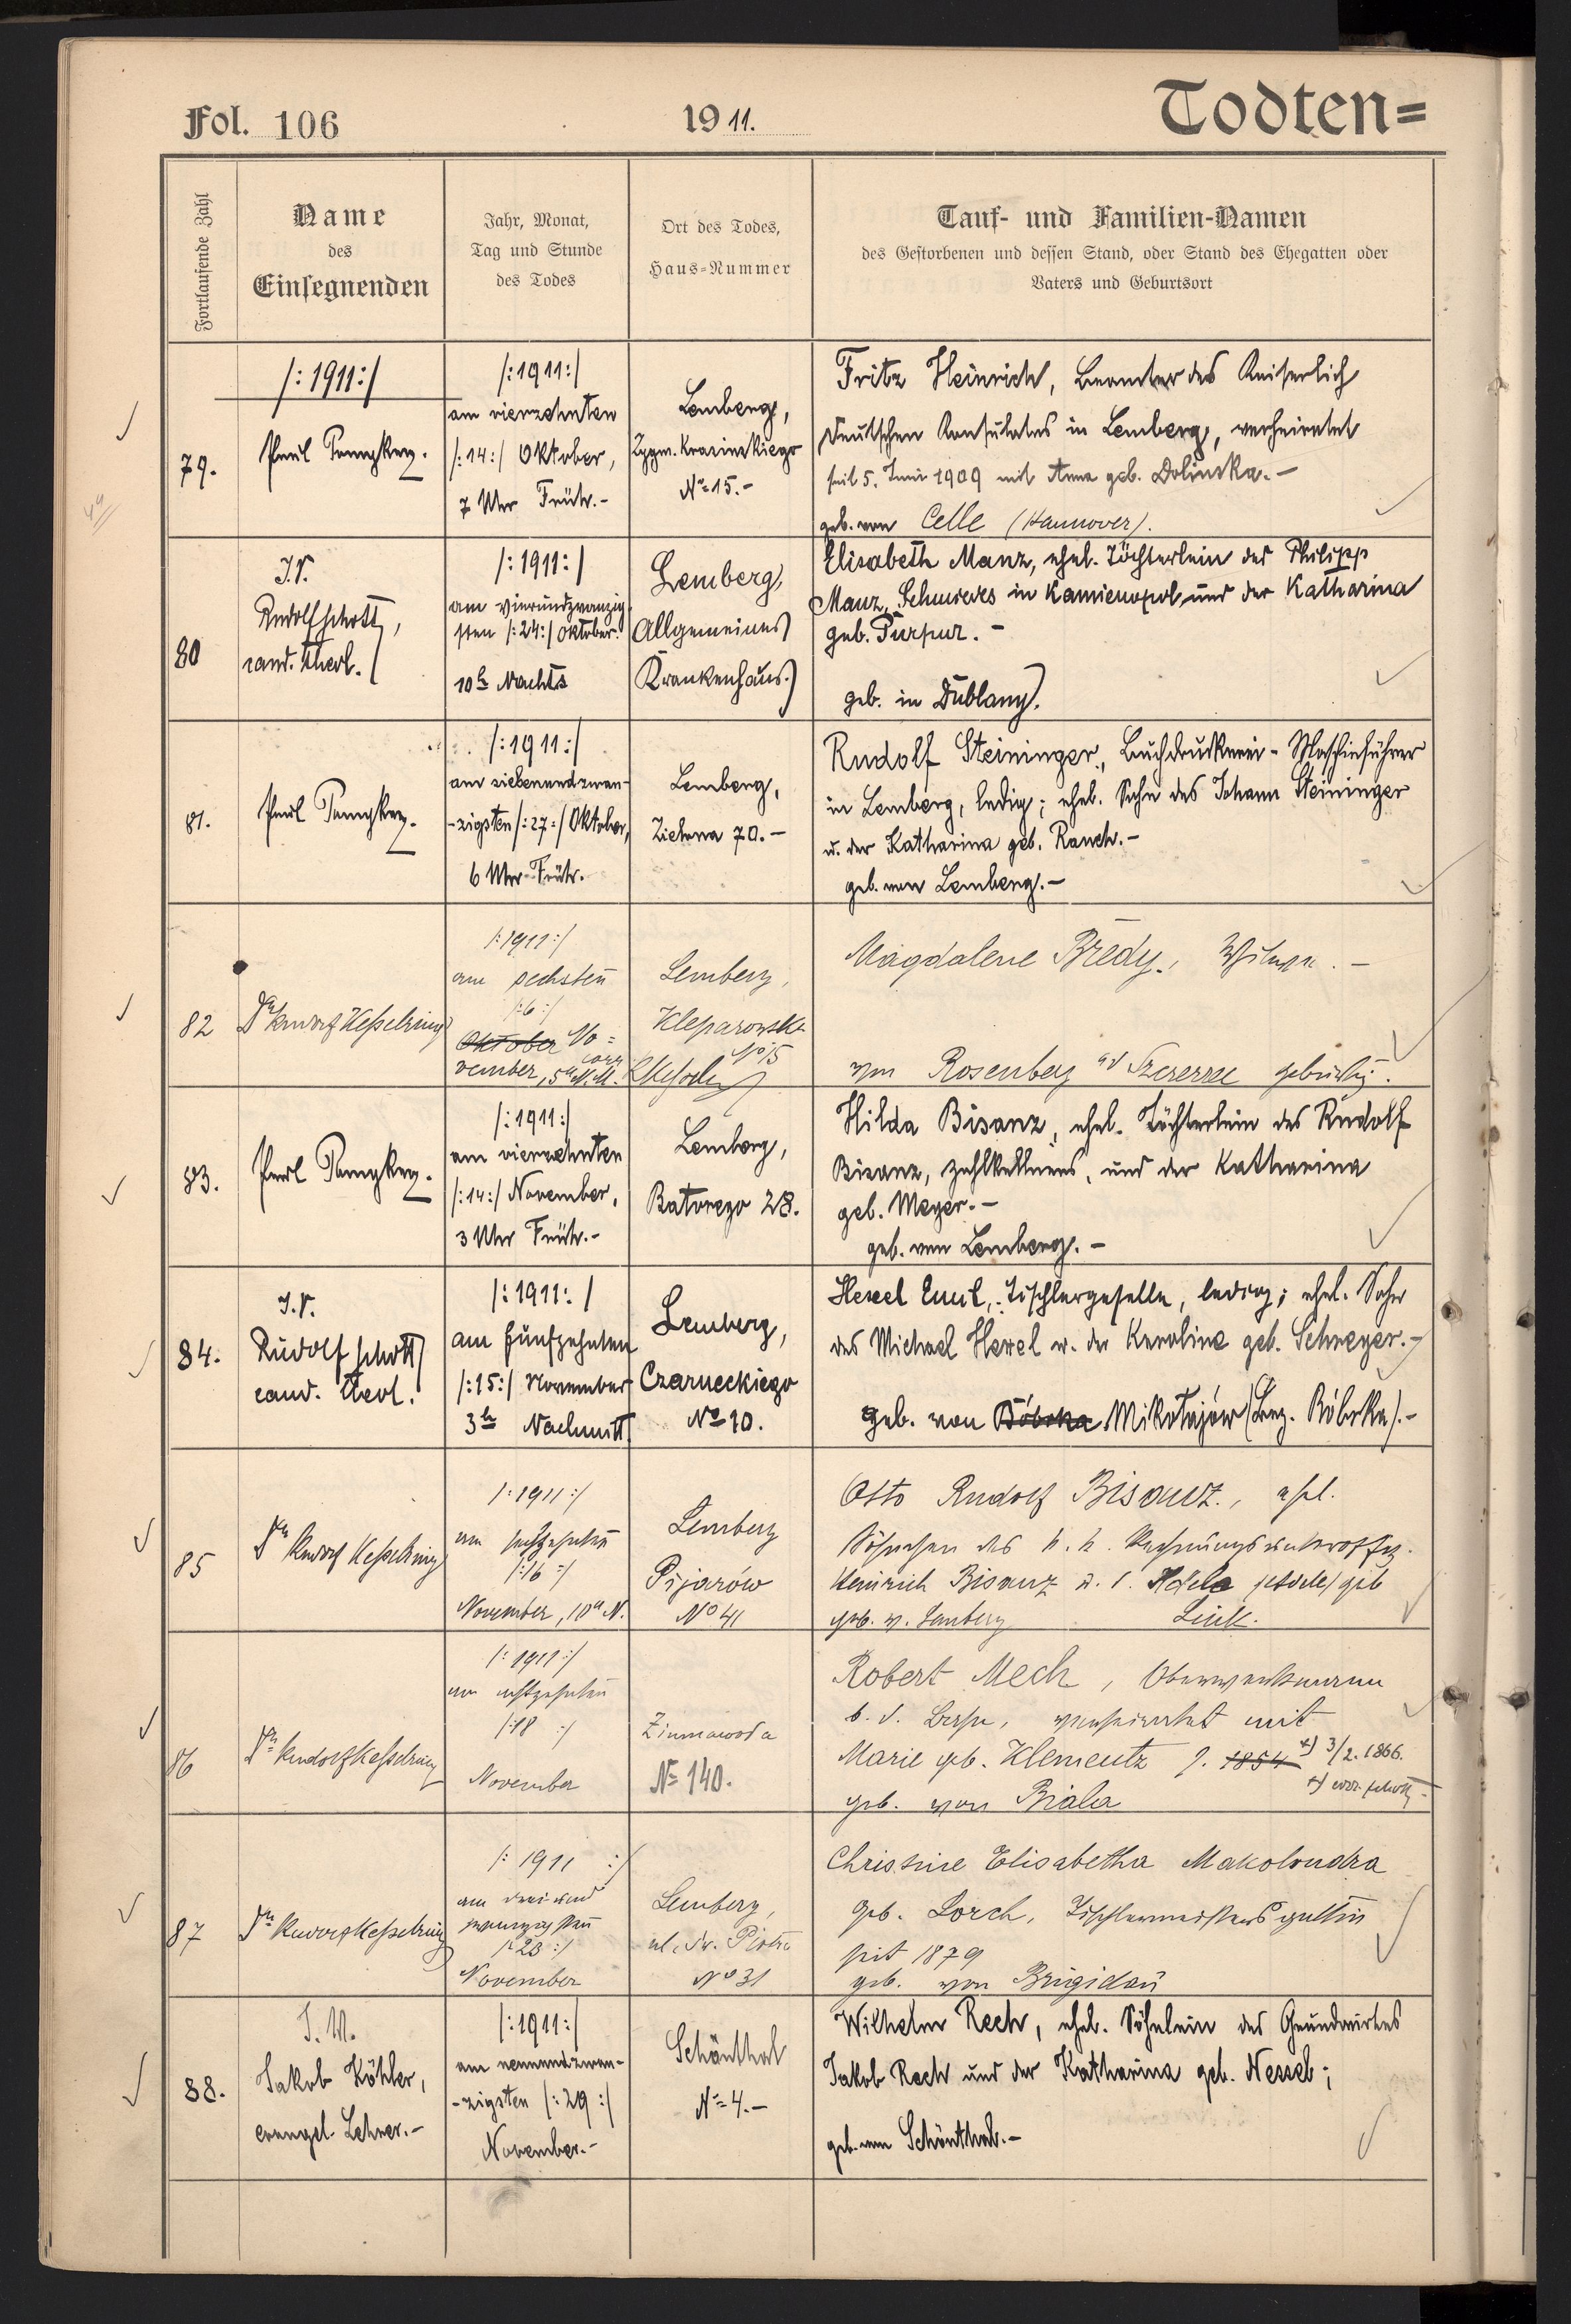 Fol. 106
1911.
Todten=
Fortlaufende Zahl
Name
des
Einsegnenden
Jahr, Monat,
Tag und Stunde
des Todes
Ort des Todes,
Haus-Nummer
Tauf- und Familien-Namen
des Gestorbenen und dessen Stand, oder Stand des Ehegatten oder
Vaters und Geburtsort
79.
/: 1911:/
Paul
/:1911:/
am vierzehnten
/:14:/ Oktober,
7 Uhr Früh.-
Lemberg,
Zygm. Krasinskiego
Nº 15.-
Fritz Heinrich, Beamter des Kaiserlich
Deutschen Konsulates in Lemberg, verheiratet
seit 5. Juni 1909 mit Anna geb. Dolinska.-
geb. von Celle (Hannover).
80
I.V.
Rudolf Schott,
cand. theol.
/:1911:/
am vierundzwanzig
sten /:24:/ Oktober.
10h Nachts
Lemberg,
Allgemeines
Krankenhaus.
Elisabeth Manz, ehel. Töchterlein des Philipp
Manz, Schmiedes in Kamienopol und der Katharina
geb. Purpur.-
geb. in Dublany.
81.
Paul
/:1911:/
am siebenundzwan-
-zigsten /:27:/ Oktober,
6 Uhr Früh.
Lemberg,
Zielona 70.-
Rudolf Steininger, Buchdruckerei-Maschinführer
in Lemberg, ledig; ehel. Sohn des Johann Steininger
u. der Katharina geb. Rauch.-
geb. von Lemberg.-
82
Dr Rudolf Kesselring
/:1911:/
am sechsten
/:6:/
Oktober No=
vember, 5h N.M.
Lemberg,
Kleparowska
Nº 15
Magdalene Bredy, Witwe.-
von Rosenberg gebürtig.
83.
Paul
/:1911:/
am vierzehnten
/:14:/ November,
3 Uhr Früh.-
Lemberg,
Batorego 28.
Hilda Bisanz, ehel. Töchterlein des Rudolf
Bisanz, Zahlkellners, und der Katharina
geb. Meyer.-
geb. von Lemberg.-
84.
I.V.
Rudolf Schott
cand. theol.
/:1911:/
am fünfzehnten
/:15:/ November
3h Nachmitt.
Lemberg,
Czarneckiego
Nº 10.
Hexel Emil, Tischlergeselle, ledig; ehel. Sohn
des Michael Hexel u. der Karoline geb. Schweyer.-
geb. von Bóbrka Mikołajów (Bez. Bóbrka).-
85
Dr Rudolf Kesselring
/:1911:/
am sechzehnten
/:16:/
November, 10h N.
Lemberg
Pijarów
Nº 41
Otto Rudolf Bisanz, ehel.
Söhnchen des k. k. Rechnungsunteroffiz.
Heinrich Bisanz u. d. Adele geb
geb. v. Lemberg Link.
86
Dr Rudolf Kesselring
/:1911:/
am achtzehnten
/:18:/
November
Zimnawoda
Nº 140.
Robert Mech, Oberwerkmann
b. d. Bahn, verheiratet mit
Marie geb. Klementz 1854 +) 3/2. 1866.
+) corr. Schott
geb. von Biala
87
Dr Rudolf Kesselring
/: 1911 :/
am dreiund
zwanzigsten
/:23:/
November
Lemberg,
ul. Sw. Piotra
Nº 31
Christine Elisabetha Makolondra
geb. Lorch, Tischlermeistersgattin
seit 1879
geb. von Brigidau
88.
Jakob Köhler,
evangel. Lehrer.-
/:1911:/
am neunundzwan-
-zigsten /:29:/
November.-
Schönthal
Nº 4.-
Wilhelm Rech, ehel. Söhnlein des Grundwirtes
Jakob Rech und der Katharina geb. Nessel;
geb. von Schönthal.-